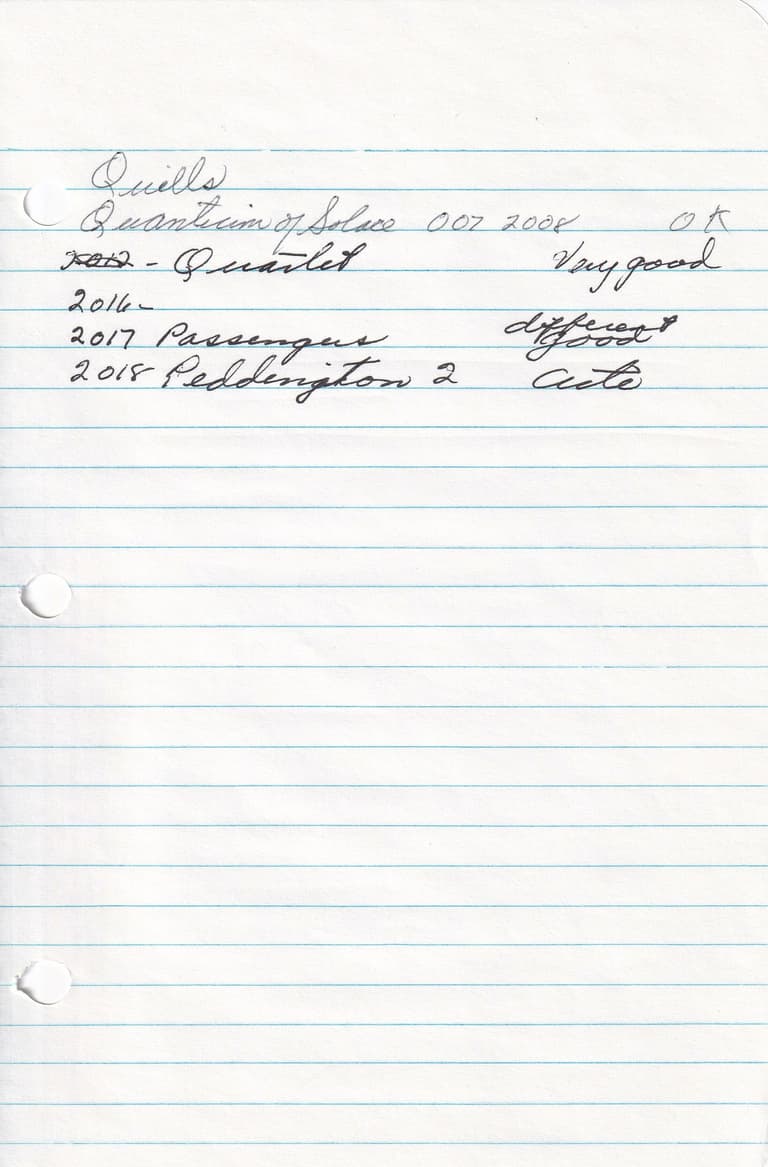 Quills
Quanticim of Solace 007 2008 OK
- Quartet Very good
2016-
2017 Passengers different good
2018 Peddington 2 Cute